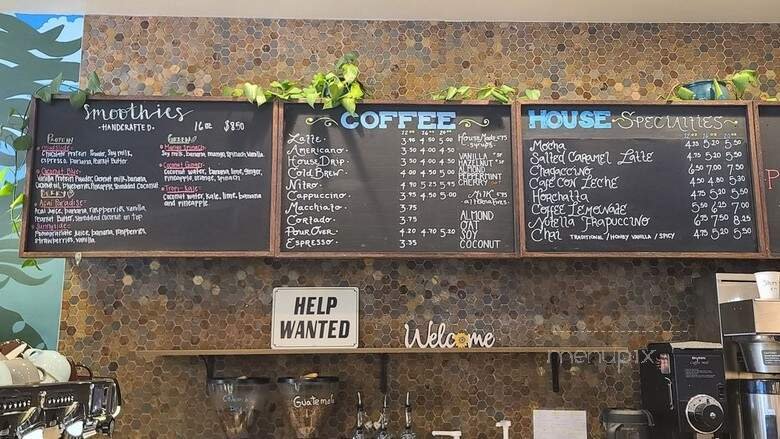 Smoothies
- HANDCRAFTED - 16oz $8.50
PROTEIN
Chocolate Protein Powder, Soy milk,
espresso, Banana, Peanut Butter
Coconut Blue-
coconut oil, Blueberries, Pineapple, Shredded Coconut
Acai Paradise-
Acai juice, Banana, raspberries, Vanilla,
Peanut Butter, Shredded Coconut on top
Sunnyside-
Pomegranate juice, Banana, raspberries,
strawberries, vanilla
GREENS
Mango Spinach-
Soy milk, banana, mango, spinach, Vanilla
Coconut Ginger-
Coconut water, Banana, lime, ginger,
pineapple, orange, spinach
Tropi-Kale-
Coconut water, kale, lime, banana
and pineapple
COFFEE
12oz 16oz 20oz
Latte. 3.95 4.50 5.00
Americano.
House Drip.
Cold Brew.
Nitro. 4.70 5.25 5.75
Cappuccino. 3.95 4.50 5.00
Macchiato. 3.75
Cortado. 3.75
Pour Over. 4.20 4.70 5.20
Espresso. 3.35
HOUSEMADE
-SYRUPS-
VANILLA
HAZELNUT
ALMOND
PEPPERMINT
CHERRY
MILK
ALMOND
OAT
SOY
COCONUT
HOUSE Specialties
Mocha 4.75 5.20 5.50
Salted Caramel Latte 4.75 5.20 5.50
Chagaccino 6.50 7.00 7.50
Cafe Con Leche 4.75 5.20 5.50
Horchatta 4.75 5.20 5.50
Coffee Lemonade 5.25 6.25 7.00
Nutella Frapuccino 6.75 7.50 8.25
Chai TRADITIONAL / HONEY VANILLA / SPICY 4.75 5.20 5.50
P
HELP
WANTED
Welcome
menupix
Guatemala